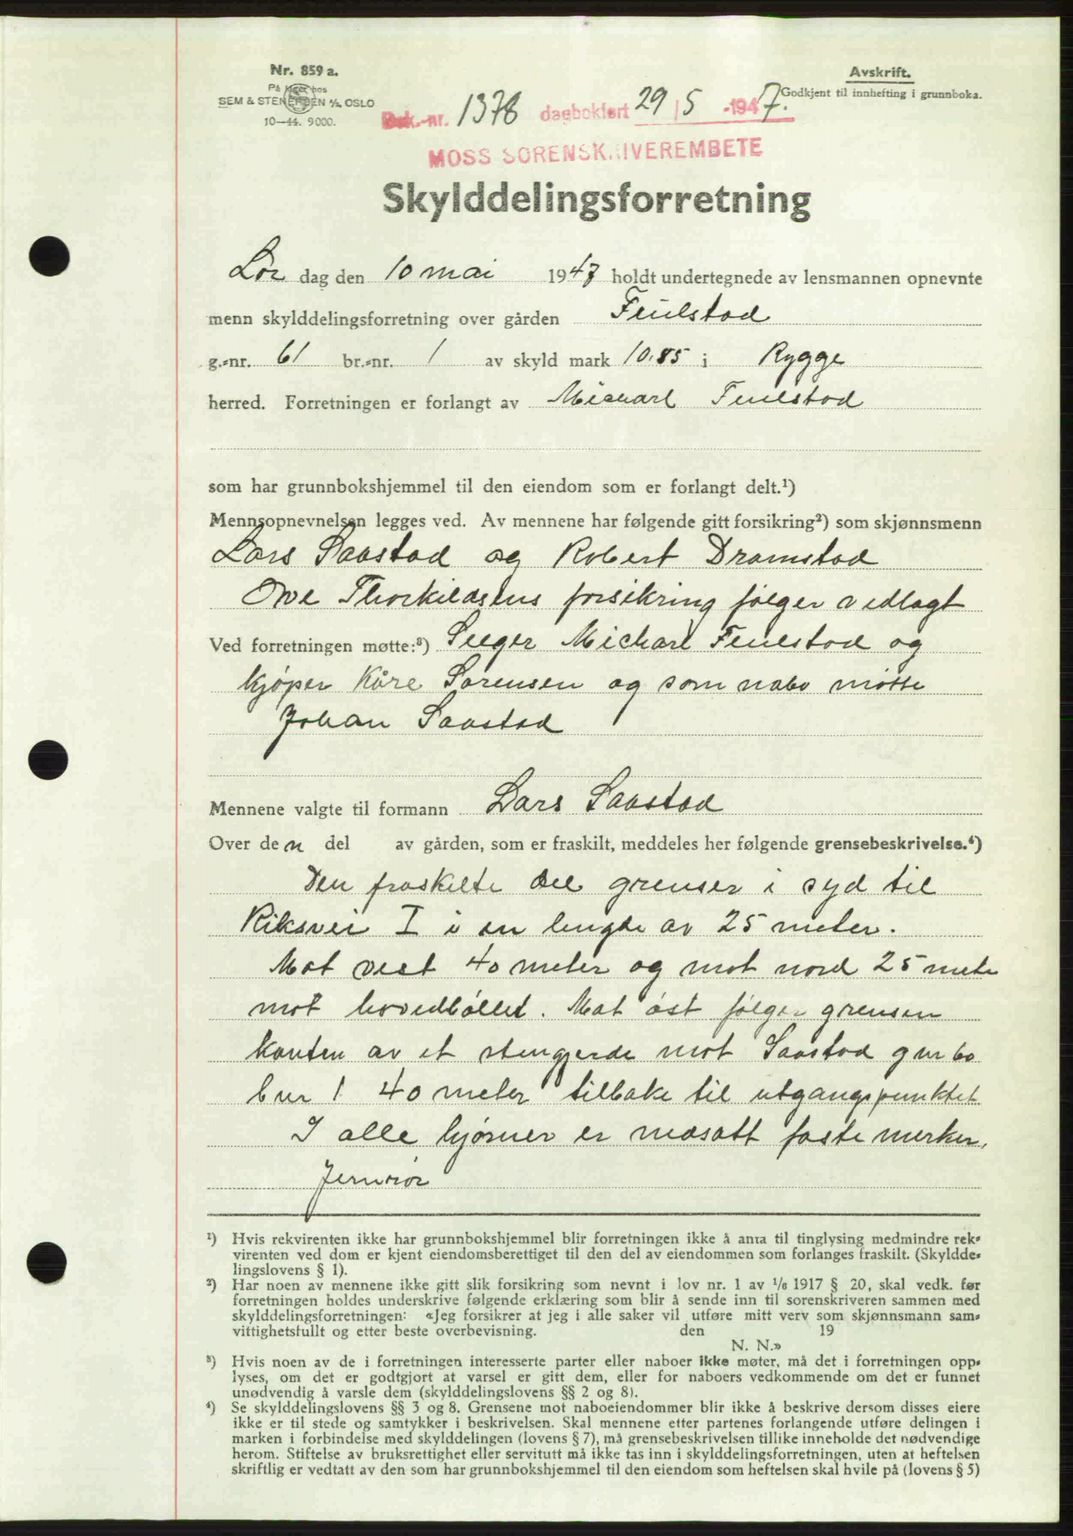 Nr. 859 a.
På lager hos
SEM & STENERSEN A/S, OSLO
10—44. 9000.
Avskrift.
Godkjent til innhefting i grunnboka.
Dok.-nr. 1378 dagbokført 29/5 -1947.
MOSS SORENSKRIVEREMBETE
Skylddelingsforretning
Lør dag den 10 mai 1947 holdt undertegnede av lensmannen opnevnte
menn skylddelingsforretning over gården Feulstad
g.-nr. 61 br.-nr. 1 av skyld mark 10.85 i Rygge
herred. Forretningen er forlangt av Michael Feulstad
som har grunnbokshjemmel til den eiendom som er forlangt delt.¹)
Mennsopnevnelsen legges ved. Av mennene har følgende gitt forsikring²) som skjønnsmenn
Lars Saastad og Robert Dramstad
Ove Thorkildsens forsikring følger vedlagt
Ved forretningen møtte:³) Selger Michael Feulstad og
kjøper Kåre Sørensen og som nabo møtte
Johan Saastad
Mennene valgte til formann Lars Saastad
Over den del av gården, som er fraskilt, meddeles her følgende grensebeskrivelse.⁴)
Den fraskilte del grenser i syd til
Riksvei I i en lengde av 25 meter.
Mot vest 40 meter og mot nord 25 mete
mot hovedbøllet. Mot øst følger grensen
kanten av et stengjerde mot Saastad gnr 60
bnr 1 40 meter tilbake til utgangspunktet
I alle hjørner er nedsatt faste merker,
Jernrør
¹) Hvis rekvirenten ikke har grunnbokshjemmel blir forretningen ikke å anta til tinglysing medmindre rek-
virenten ved dom er kjent eiendomsberettiget til den del av eiendommen som forlanges fraskilt. (Skyldde-
lingslovens § 1).
²) Har noen av mennene ikke gitt slik forsikring som nevnt i lov nr. 1 av 1/6 1917 § 20, skal vedk. før
forretningen holdes underskrive følgende erklæring som blir å sende inn til sorenskriveren sammen med
skylddelingsforretningen: «Jeg forsikrer at jeg i alle saker vil utføre mitt verv som skjønnsmann sam-
vittighetsfullt og etter beste overbevisning. den 19
N. N.»
³) Hvis noen av de i forretningen interesserte parter eller naboer ikke møter, må det i forretningen opp-
lyses, om det er godtgjort at varsel er gitt dem, eller for naboers vedkommende om det er funnet
unødvendig å varsle dem (skylddelingslovens §§ 2 og 8).
⁴) Se skylddelingslovens §§ 3 og 8. Grensene mot naboeiendommer blir ikke å beskrive dersom disses eiere
ikke er til stede og samtykker i beskrivelsen. Skal mennene etter partenes forlangende utføre delingen i
marken i forbindelse med skylddelingen (lovens § 7), må grensebeskrivelsen tillike inneholde det nødvendige
herom. Stiftelse av bruksrettighet eller servitutt må ikke tas inn i skylddelingsforretningen, uten at heftelsen
skriftlig er vedtatt av den som har grunnbokshjemmel til den eiendom som heftelsen skal hvile på (lovens § 5)